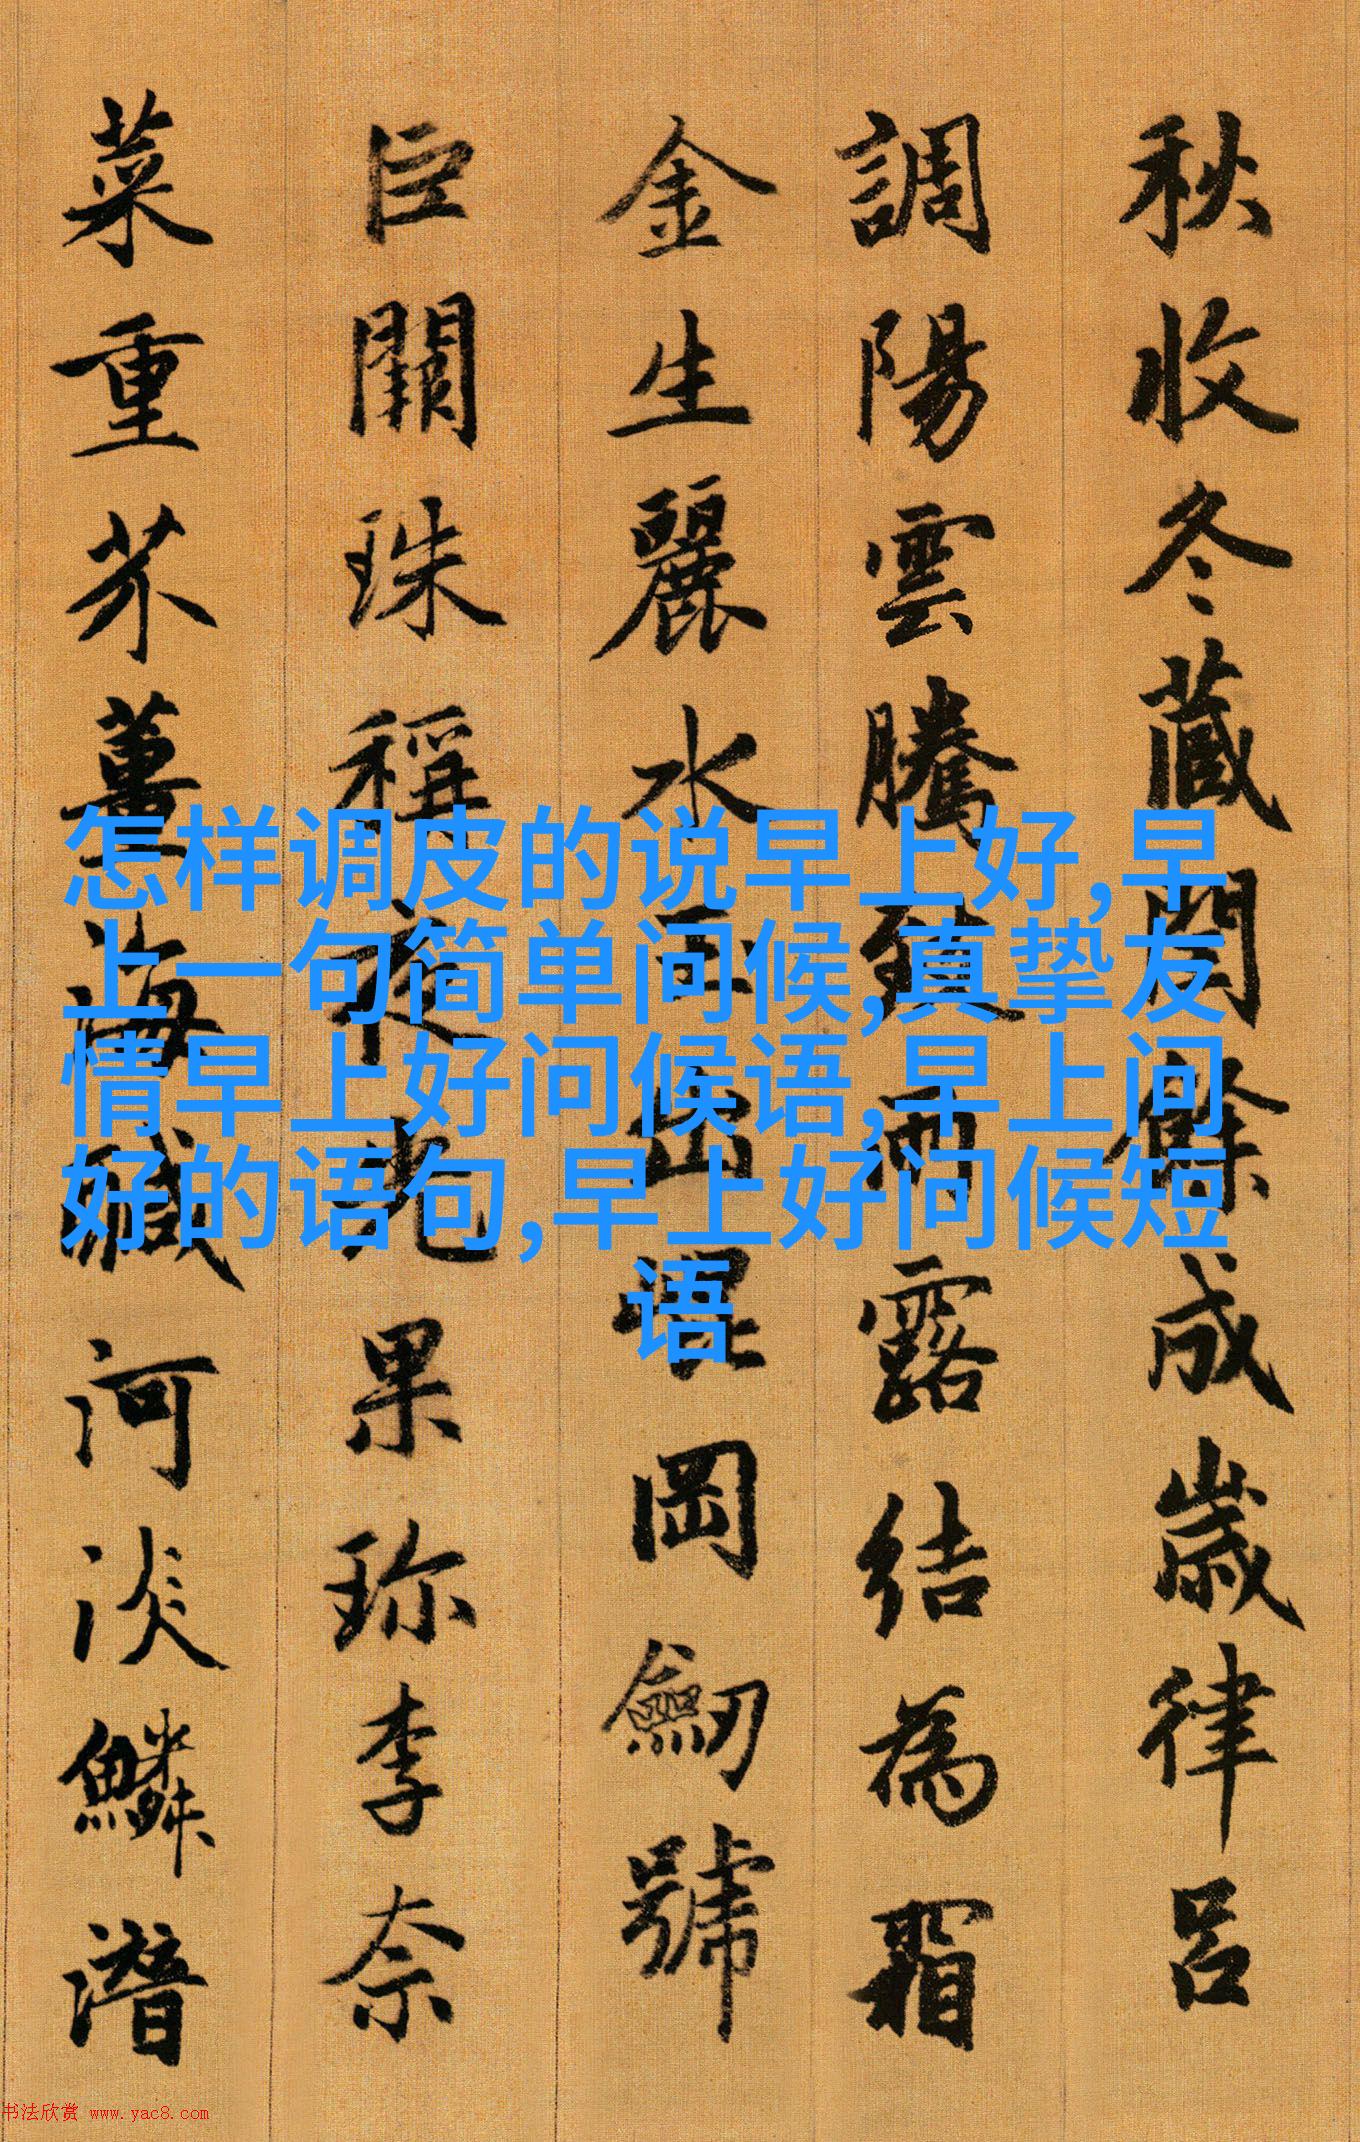 秋收冬藏閏餘成歲律呂
調陽雲騰致雨露結為霜
金生麗水玉出崐岡劒號
巨闕珠稱夜光果珎李奈
菜重芥薑海鹹河淡鱗潛
怎样调皮的说早上好,早
上一句简单问候,真挚友
情早上好问候语,早上问
好的语句,早上好问候短
语
书法欣赏 www.yac8.com